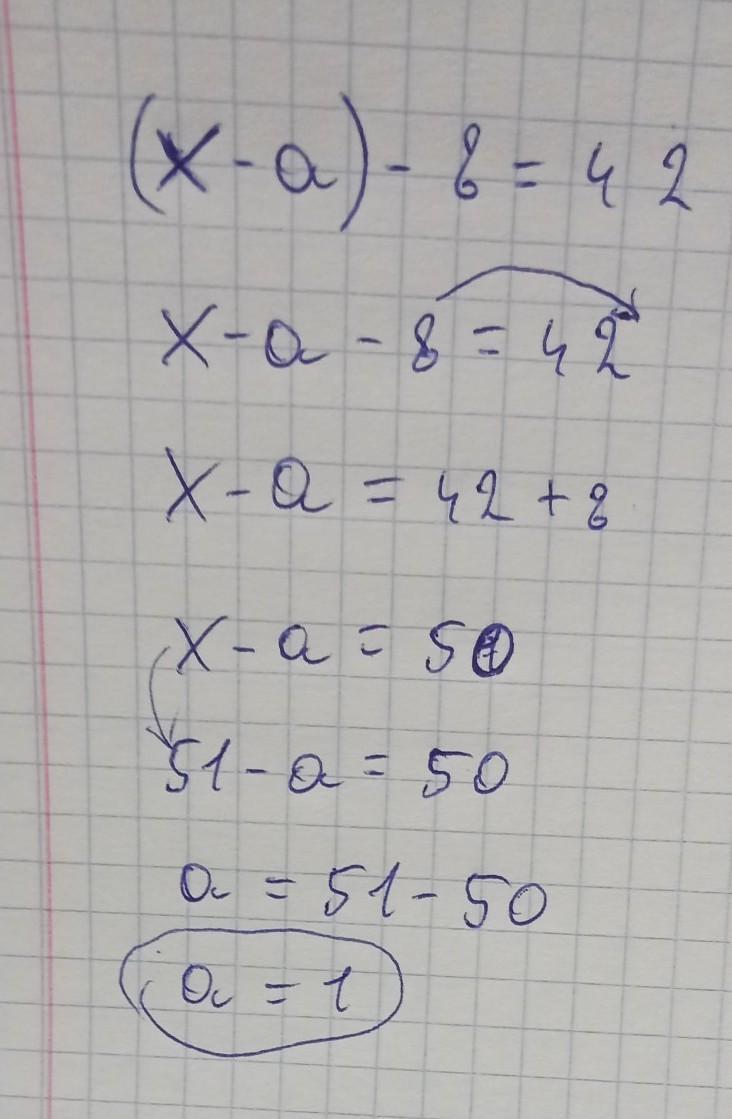 (x-a)-8=42
x-a-8=42
x-a=42+8
x-a=50
51-a=50
a=51-50
a=1